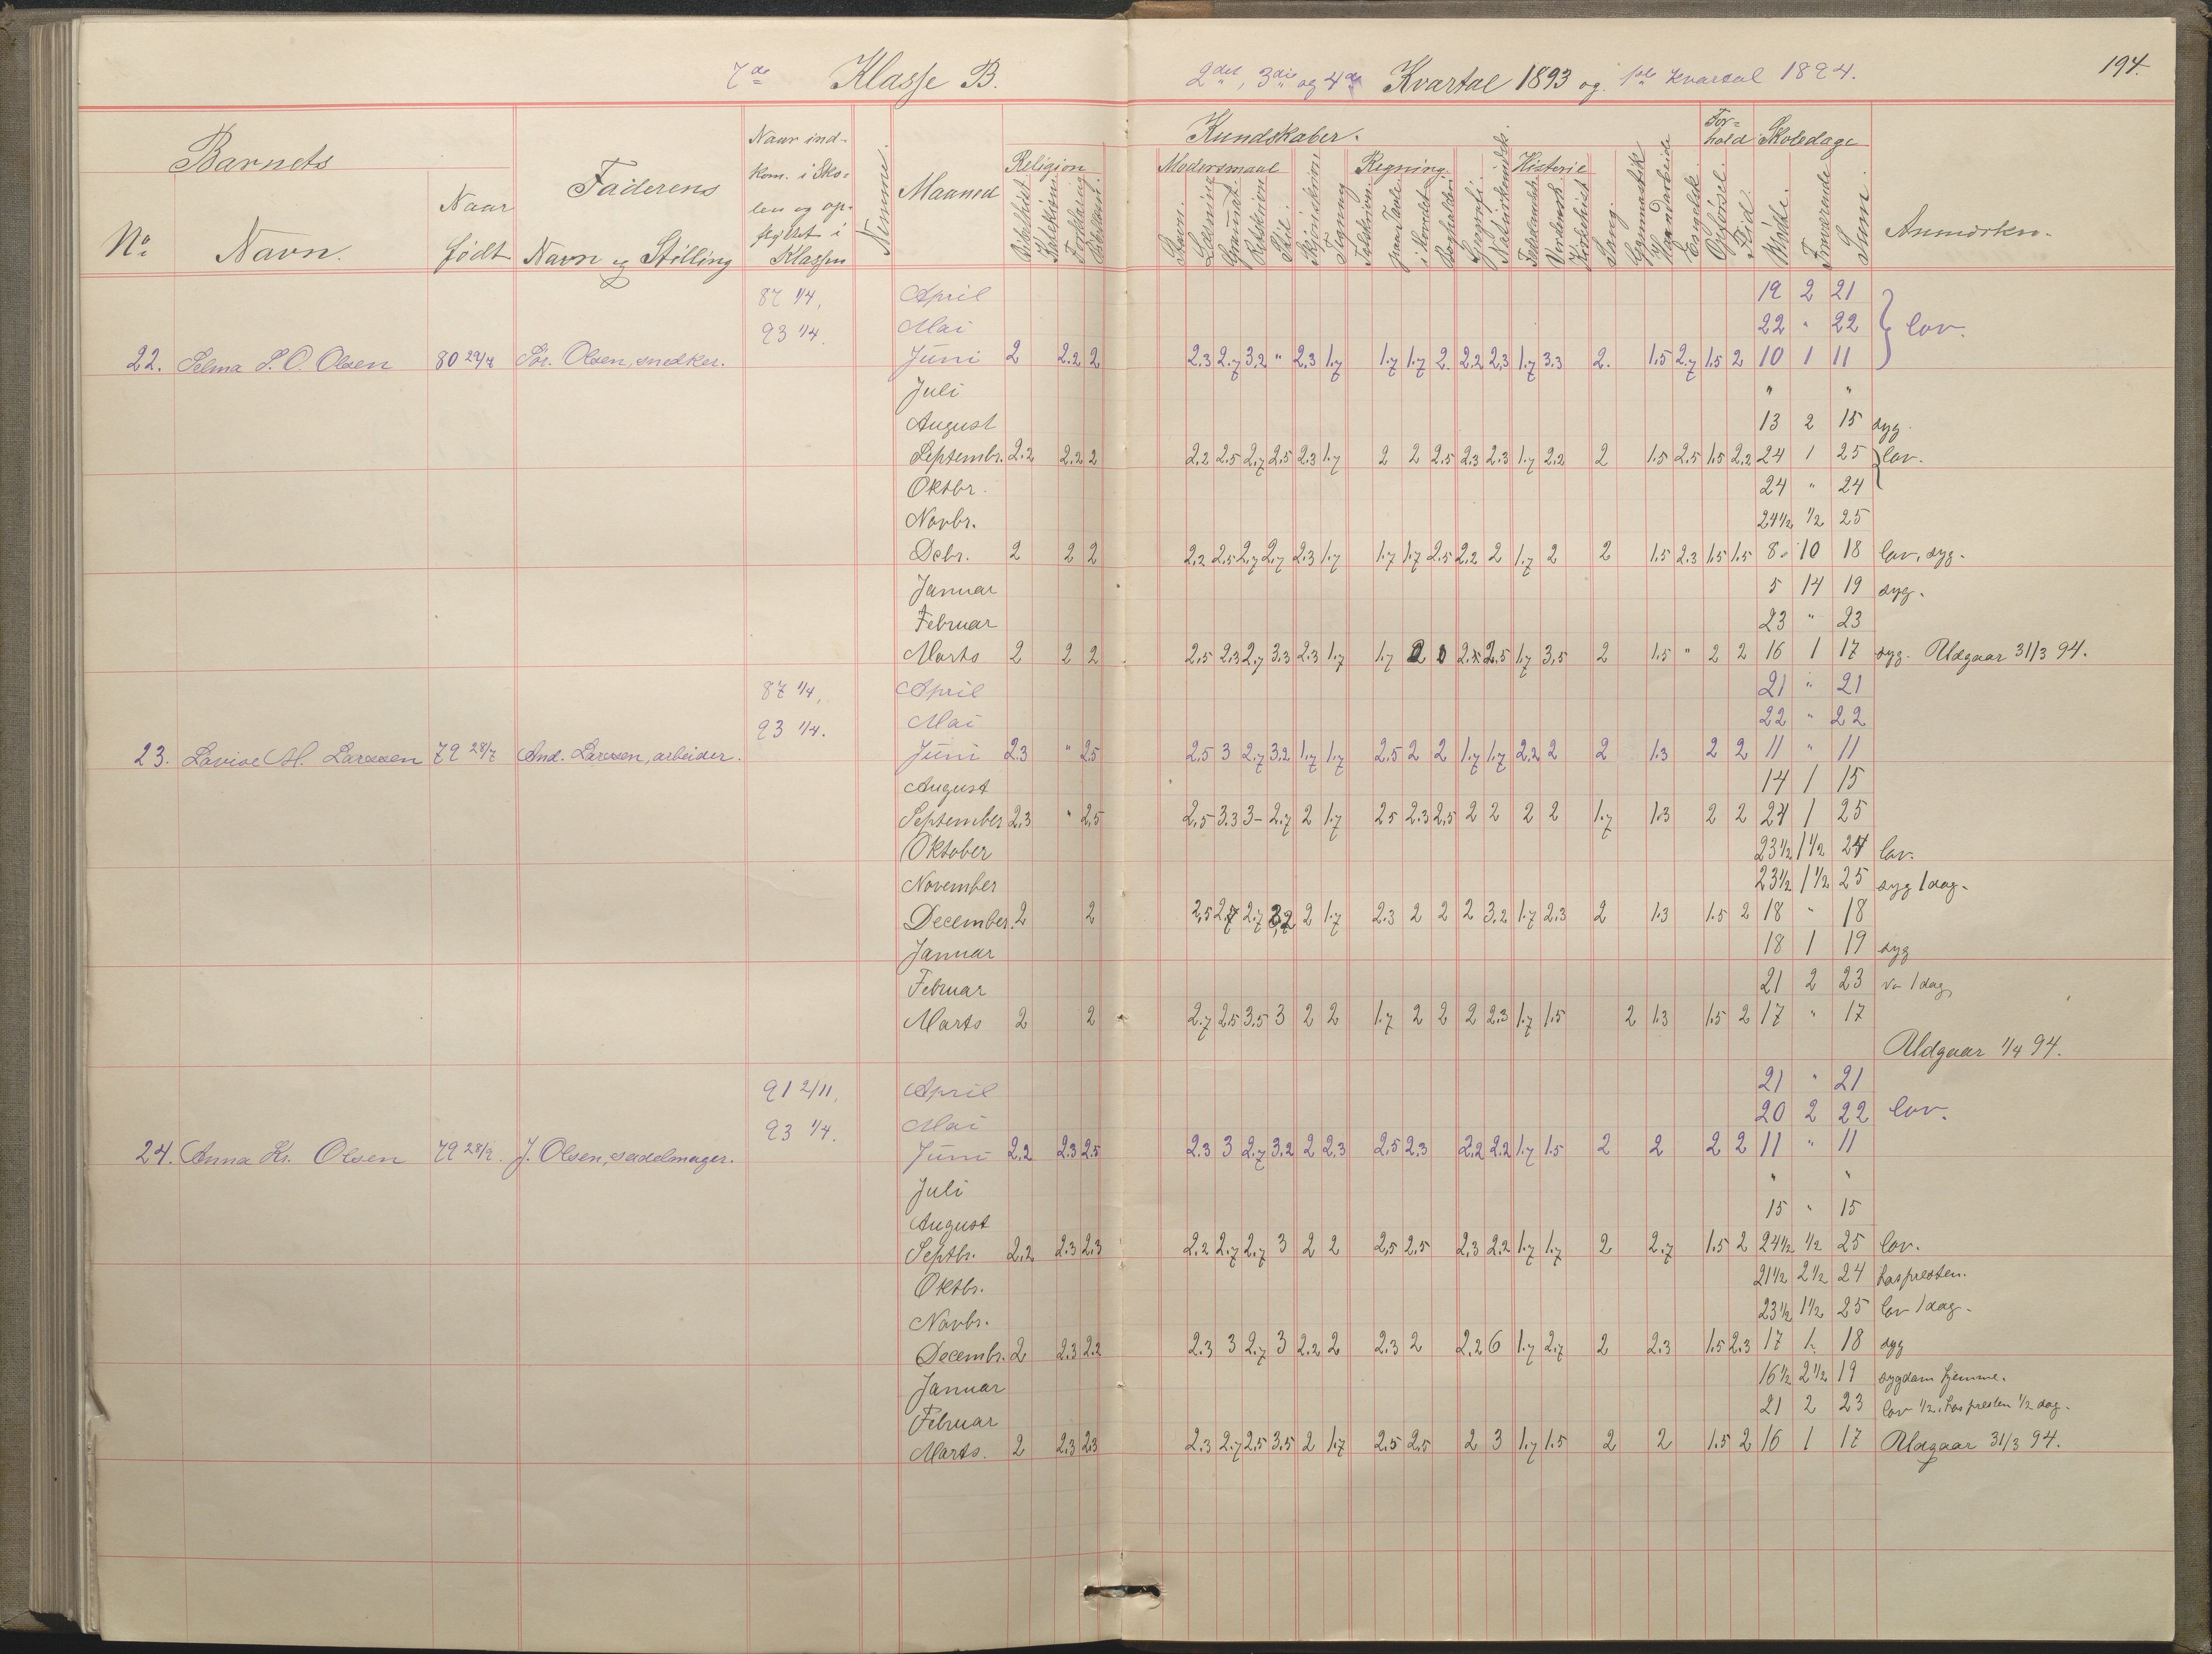 7de Klasse B. 2det, 3die og 4de Kvartal 1893 og 1ste Kvartal 1894. 194.
Barnets
No Navn. Naar født
Faderens Navn og Stilling
Naar ind-
kom. i Sko-
len og op-
flyttet i
Klassen
Nummer.
Maaned
Kundskaber.
Religion Modersmaal Regning. Historie
For-
hold Skoledage
Anmærkn.
87 1/4, April 19 2 21
93 1/4. Mai 22 " 22 lov.
22. Selma S. O. Olsen Sør. Olsen, snedker. Juni 2 2.2 2 2.3 2.7 3.2 " 2.3 1.7 1.7 1.7 2. 2.2 2.3 1.7 3.3 2. 1.5 2.7 1.5 2 10 1 11
Juli " "
August 13 2 15 syg.
Septembr. 2.2 2.2 2 2.2 2.5 2.7 2.5 2.3 1.7 2 2 2.5 2.3 2.3 1.7 2.2 2 1.5 2.5 1.5 2.2 24 1 25 lov.
Oktbr. 24 " 24
Novbr. 24½ ½ 25
Debr. 2 2 2 2.2 2.5 2.7 2.7 2.3 1.7 1.7 1.7 2.5 2.2 2 1.7 2 2 1.5 2.3 1.5 1.5 8 10 18 lov, syg.
Januar 5 14 19 syg.
Februar 23 " 23
Marts 2 2 2 2.5 2.3 2.7 3.3 2.3 1.7 1.7 2 2.5 1.7 3.5 2 1.5 " 2 2 16 1 17 syg. Udgaar 31/3 94.
87 1/4, April 21 " 21
93 1/4. Mai 22 " 22
23. Lovise M. Larssen 79 28/7 And. Larssen, arbeider. Juni 2.3 " 2.5 2.5 3 2.7 3.2 1.7 1.7 2.5 2 2 1.7 1.7 2.2 2 2 1.3 2 2 11 " 11
August 14 1 15
September 2.3 " 2.5 2.5 3.3 3- 2.7 2 1.7 2.5 2.3 2.5 2 2 2 2 1.7 1.3 2 2 24 1 25
Oktober 23½ 1½ 24 lov.
November 23½ 1½ 25 syg 1 dag.
December. 2 2 2.5 2.7 2.7 3.2 2 1.7 2.3 2 2 2 3.2 1.7 2.3 2 1.3 1.5 2 18 " 18
Januar 18 1 19 syg
Februar 21 2 23 1 dag
Marts 2 2 2.7 2.5 3.5 3 2 2 1.7 2 2 2 2.3 1.7 1.5 2 1.3 1.5 2 17 " 17
Udgaar 1/4 94.
91 2/11, April 21 " 21
93 1/4. Mai 20 2 22 lov.
24. Anna Kr. Olsen 79 28/9. J. Olsen, sadelmager. Juni 2.2 2.3 2.5 2.3 3 2.7 3.2 2 2.3 2.5 2.3 2.2 2.2 1.7 1.5 2 2 2 2 11 " 11
Juli " "
August 15 " 15
Septbr. 2.2 2.3 2.3 2.2 2.7 2.7 3 2 2 2.5 2.5 2.3 2.2 1.7 1.7 2 2.7 1.5 2 24½ ½ 25 lov.
Oktbr. 21½ 2½ 24 hos presten.
Novbr. 23½ 1½ 25 lov 1 dag.
Decembr. 2 2.3 2.2 2.3 3 2.7 3 2.2 2 2.3 2 2.2 6 1.7 2.7 2 2.3 1.5 2.3 17 1 18 syg
Januar 16½ 2½ 19 sygdom hjemme.
Februar 21 2 23 lov ½, hos presten ½ dag.
Marts. 2 2.3 2.3 2.3 2.7 2.5 3.5 2 1.7 2.5 2.5 2 3 1.7 1.5 2 2 1.5 2 16 1 17 Udgaar 31/3 94.